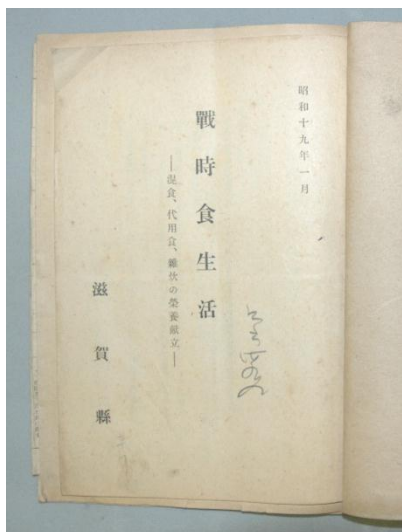 昭和十九年一月
戰時食生活
―混食、代用食、雜炊の榮養献立―
滋賀縣